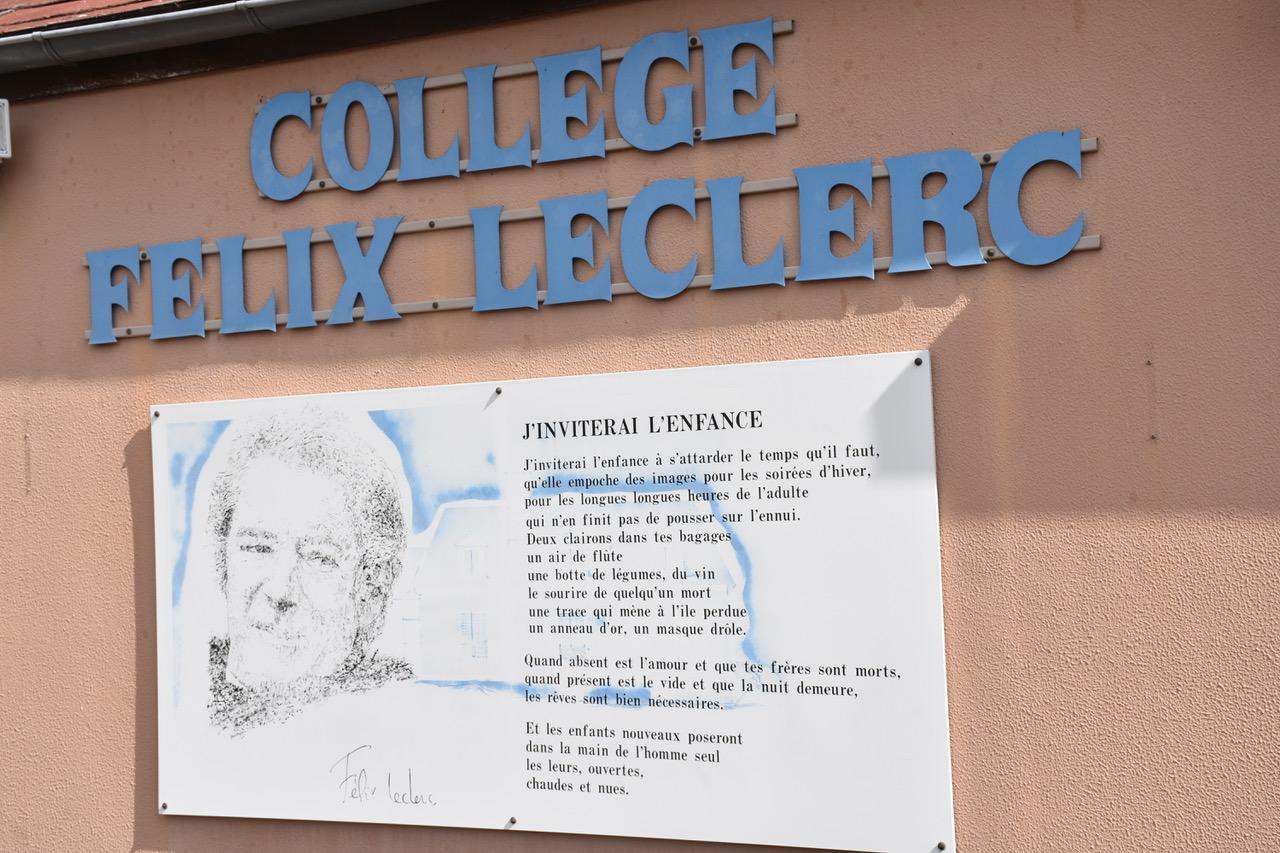 COLLEGE
FELIX LECLERC
J'INVITERAI L'ENFANCE
J'inviterai l'enfance à s'attarder le temps qu'il faut,
qu'elle empoche des images pour les soirées d'hiver,
pour les longues longues heures de l'adulte
qui n'en finit pas de pousser sur l'ennui.
Deux clairons dans tes bagages
un air de flûte
une botte de légumes, du vin
le sourire de quelqu'un mort
une trace qui mène à l'île perdue
un anneau d'or, un masque drôle.
Quand absent est l'amour et que tes frères sont morts,
quand présent est le vide et que la nuit demeure,
les rêves sont bien nécessaires.
Et les enfants nouveaux poseront
dans la main de l'homme seul
les leurs, ouvertes,
chaudes et nues.
Félix Leclerc